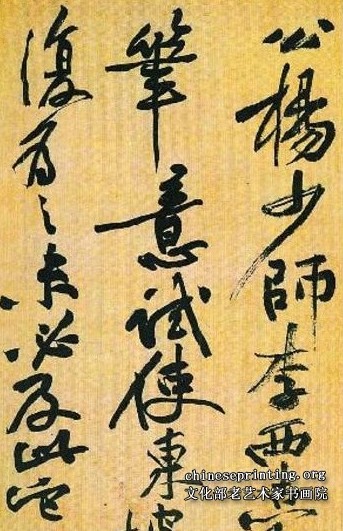 公楊少師李西臺
筆意試使東坡
復為之未必及此它
chineseprinting.org
文化部老艺术家书画院